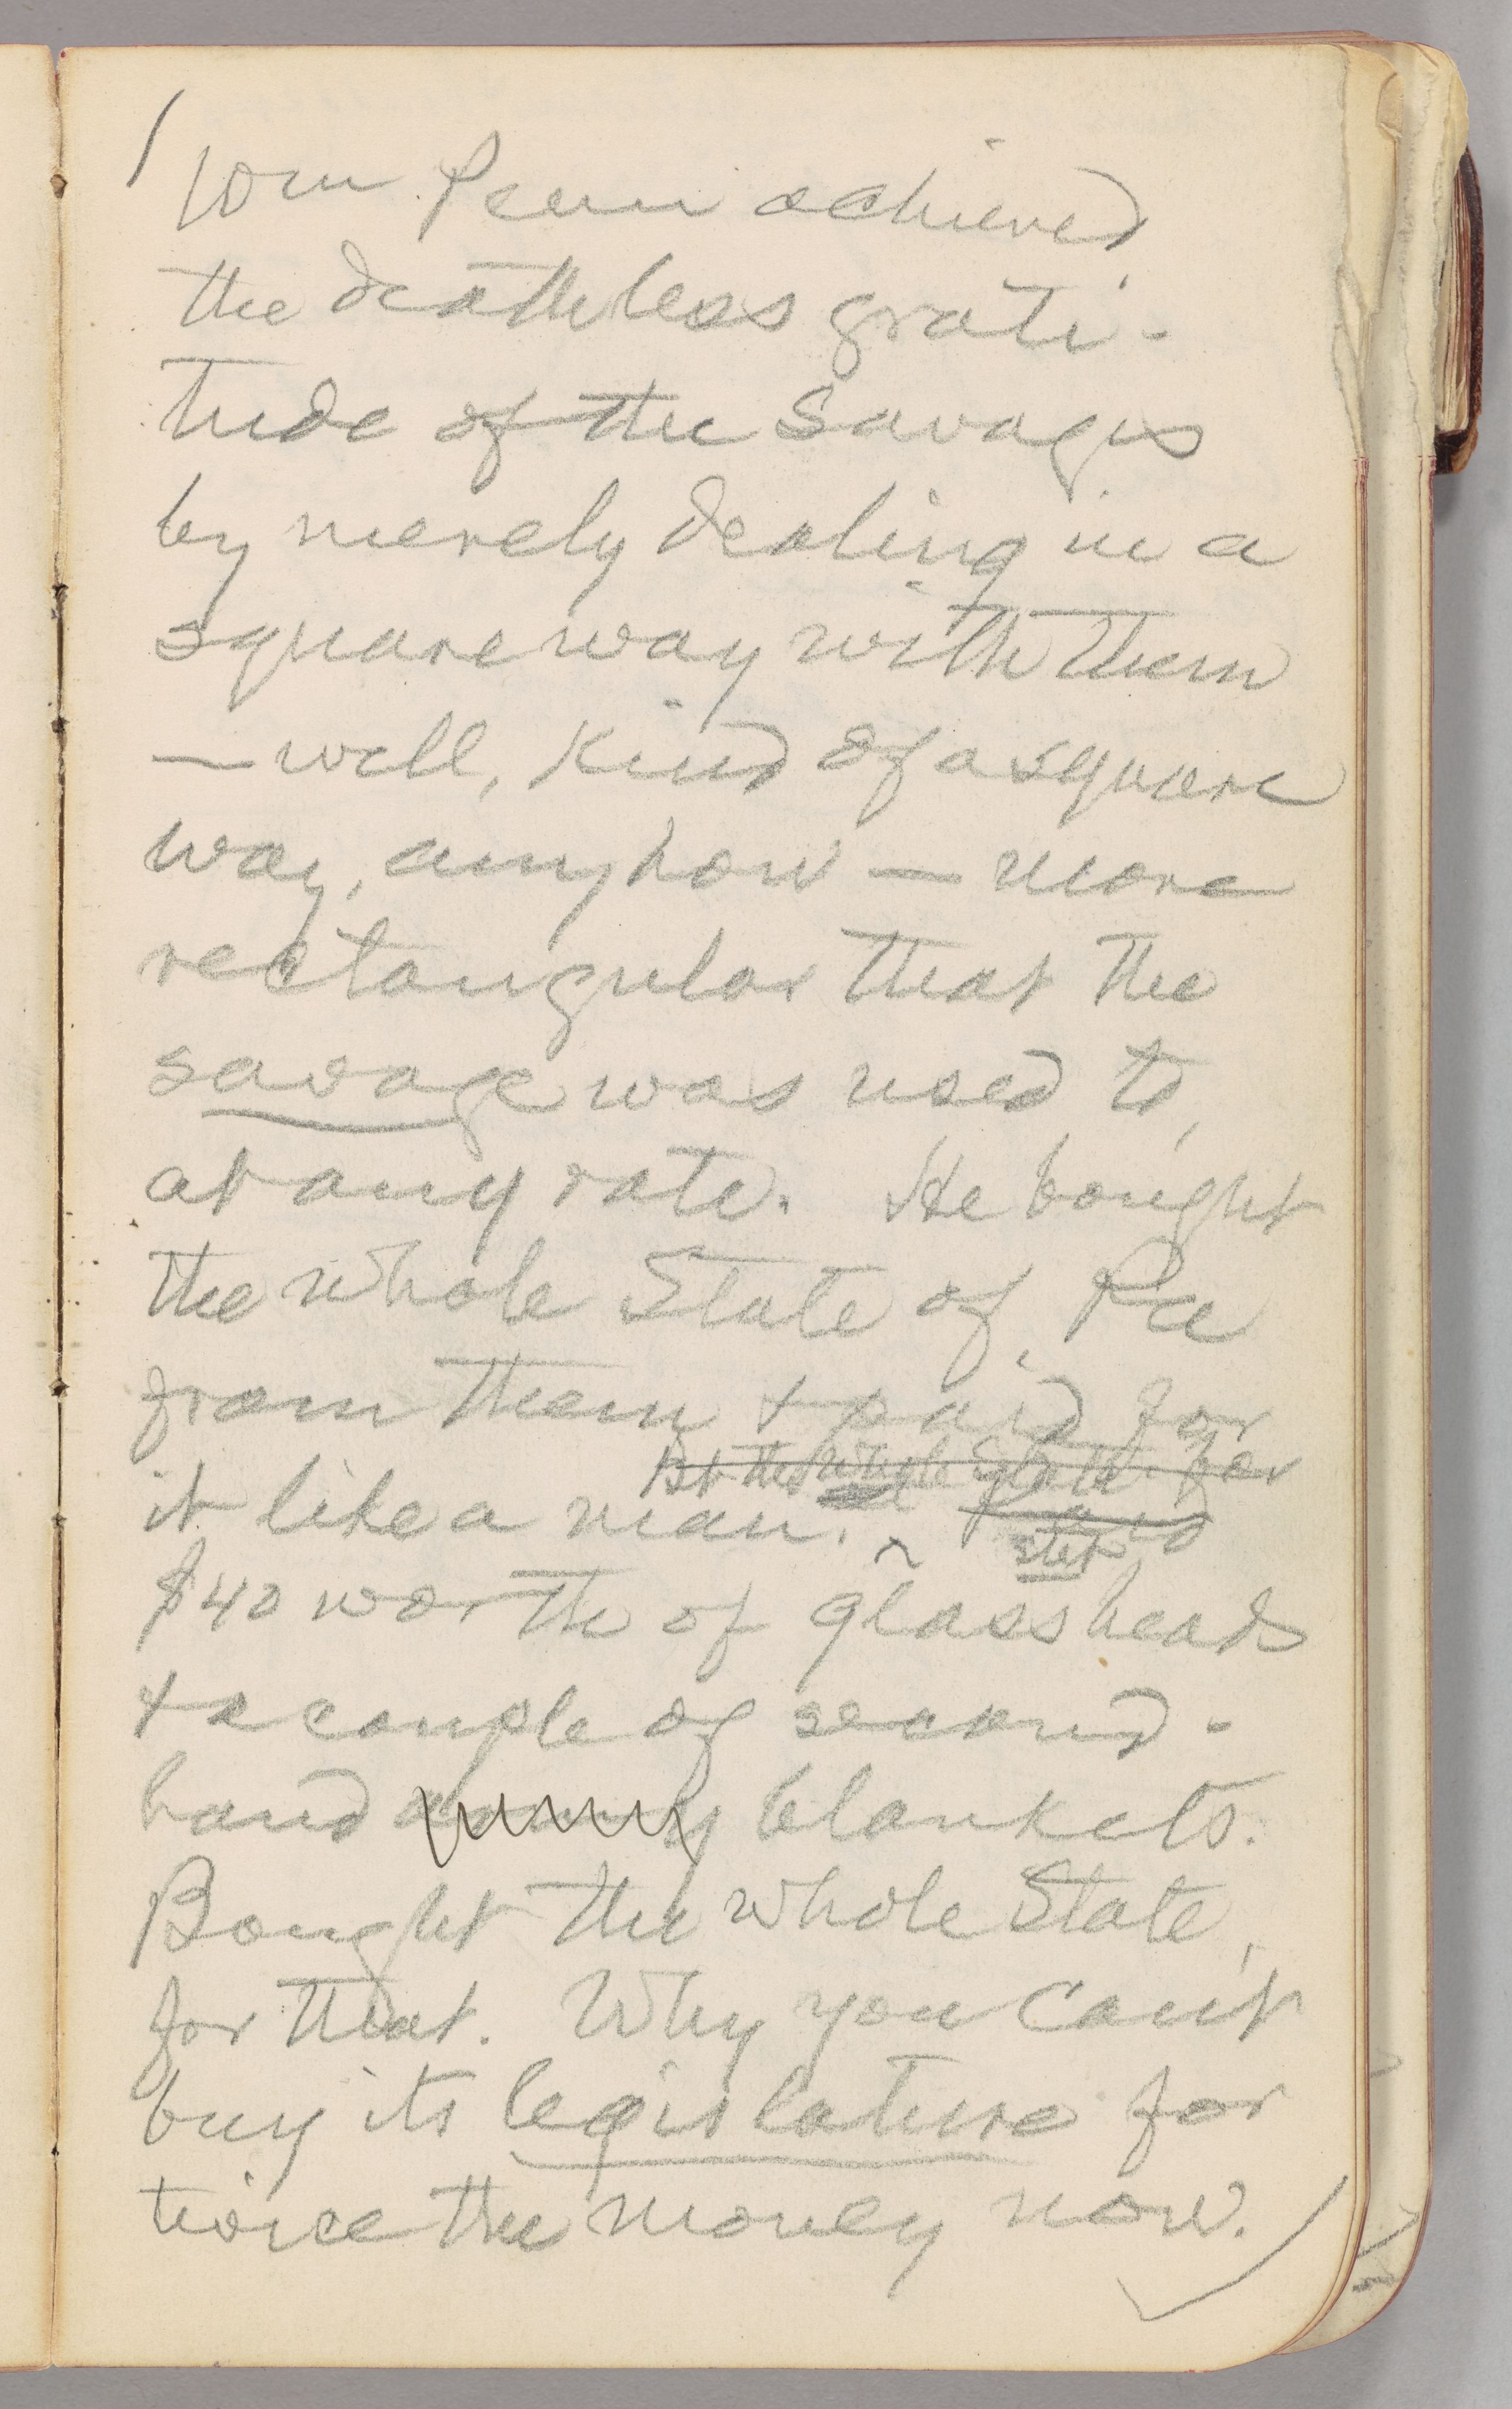 Wm Penn achieved
the deathless grati-
tude of the savages
by merely dealing in a
square way with them
— well, kind of a square
way, anyhow — more
rectangular that the
savage was used to,
at any rate. He bought
the whole State of Pa
from them & paid for
Bt the whole State for
it like a man. paid
stet
$40 worth of glass beads
& a couple of second-
hand army blankets.
Bought the whole State
for that. Why you can't
buy its legislature for
twice the money now.